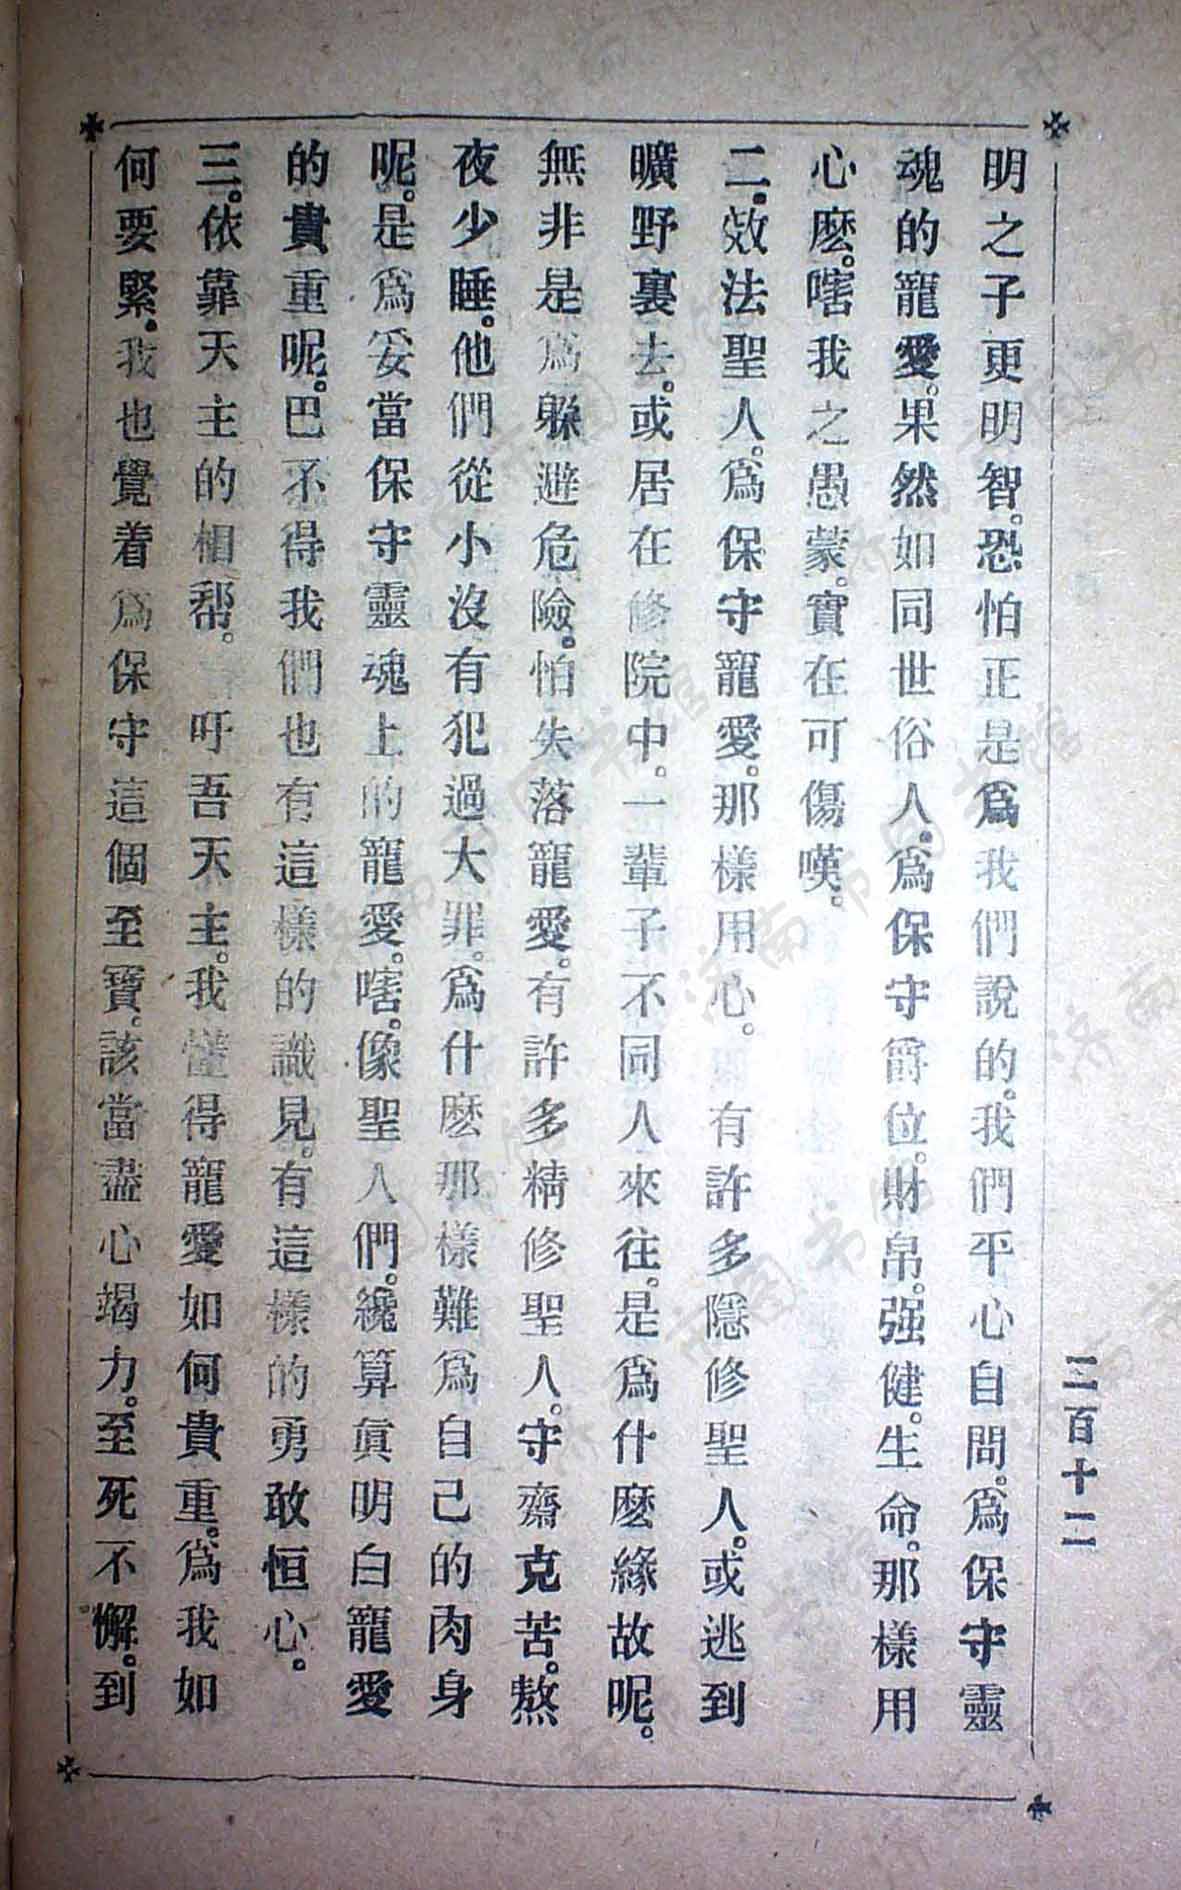 三百十二
明之子更明智。恐怕正是爲我們說的。我們平心自問。爲保守靈
魂的寵愛。果然如同世俗人。爲保守爵位。財帛。强健。生命。那樣用
心麽。嗐我之愚蒙。實在可傷嘆。
二。效法聖人。爲保守寵愛。那樣用心。有許多隱修聖人。或逃到
曠野裏去。或居在修院中。一輩子不同人來往。是爲什麽緣故呢。
無非是爲躲避危險。怕失落寵愛。有許多精修聖人。守齋克苦。熬
夜少睡。他們從小沒有犯過大罪。爲什麽那樣難爲自己的肉身
呢。是爲妥當保守靈魂上的寵愛。嗐。像聖人們。纔算眞明白寵愛
的貴重呢。巴不得我們也有這樣的識見。有這樣的勇敢恒心。
三。依靠天主的相帮。吁吾天主。我懂得寵愛如何貴重。爲我如
何要緊。我也覺着爲保守這個至寶。該當盡心竭力。至死不懈。到
济南市图书馆